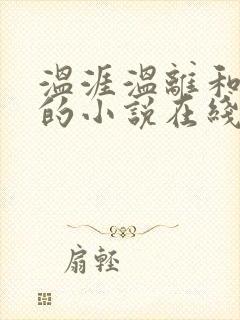 温涯温離和
的小説在綫
扇輕